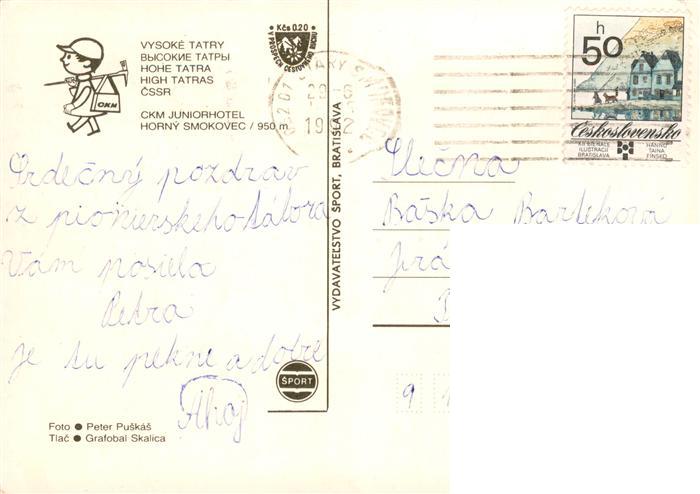 VYSOKÉ TATRY
ВЫСОКИЕ ТАТРЫ
HOHE TATRA
HIGH TATRAS
ČSSR
CKM JUNIORHOTEL
HORNÝ SMOKOVEC / 950 m
CKM
Kčs 0.20
V PROSPECH CESTOVNÉHO RUCHU
h
50
Československo
XII BIENÁLE
ILUSTRÁCIÍ
BRATISLAVA
HANNO
TAINA
FÍNSKO
Srdečný pozdrav
z pionierskeho tábora
Vám posiela
Petra
je tu pekne a dobre
Ahoj
VYDAVATEĽSTVO ŠPORT, BRATISLAVA
ŠPORT
Slečna
Baška Barteková
9
Foto ● Peter Puškáš
Tlač ● Grafobal Skalica